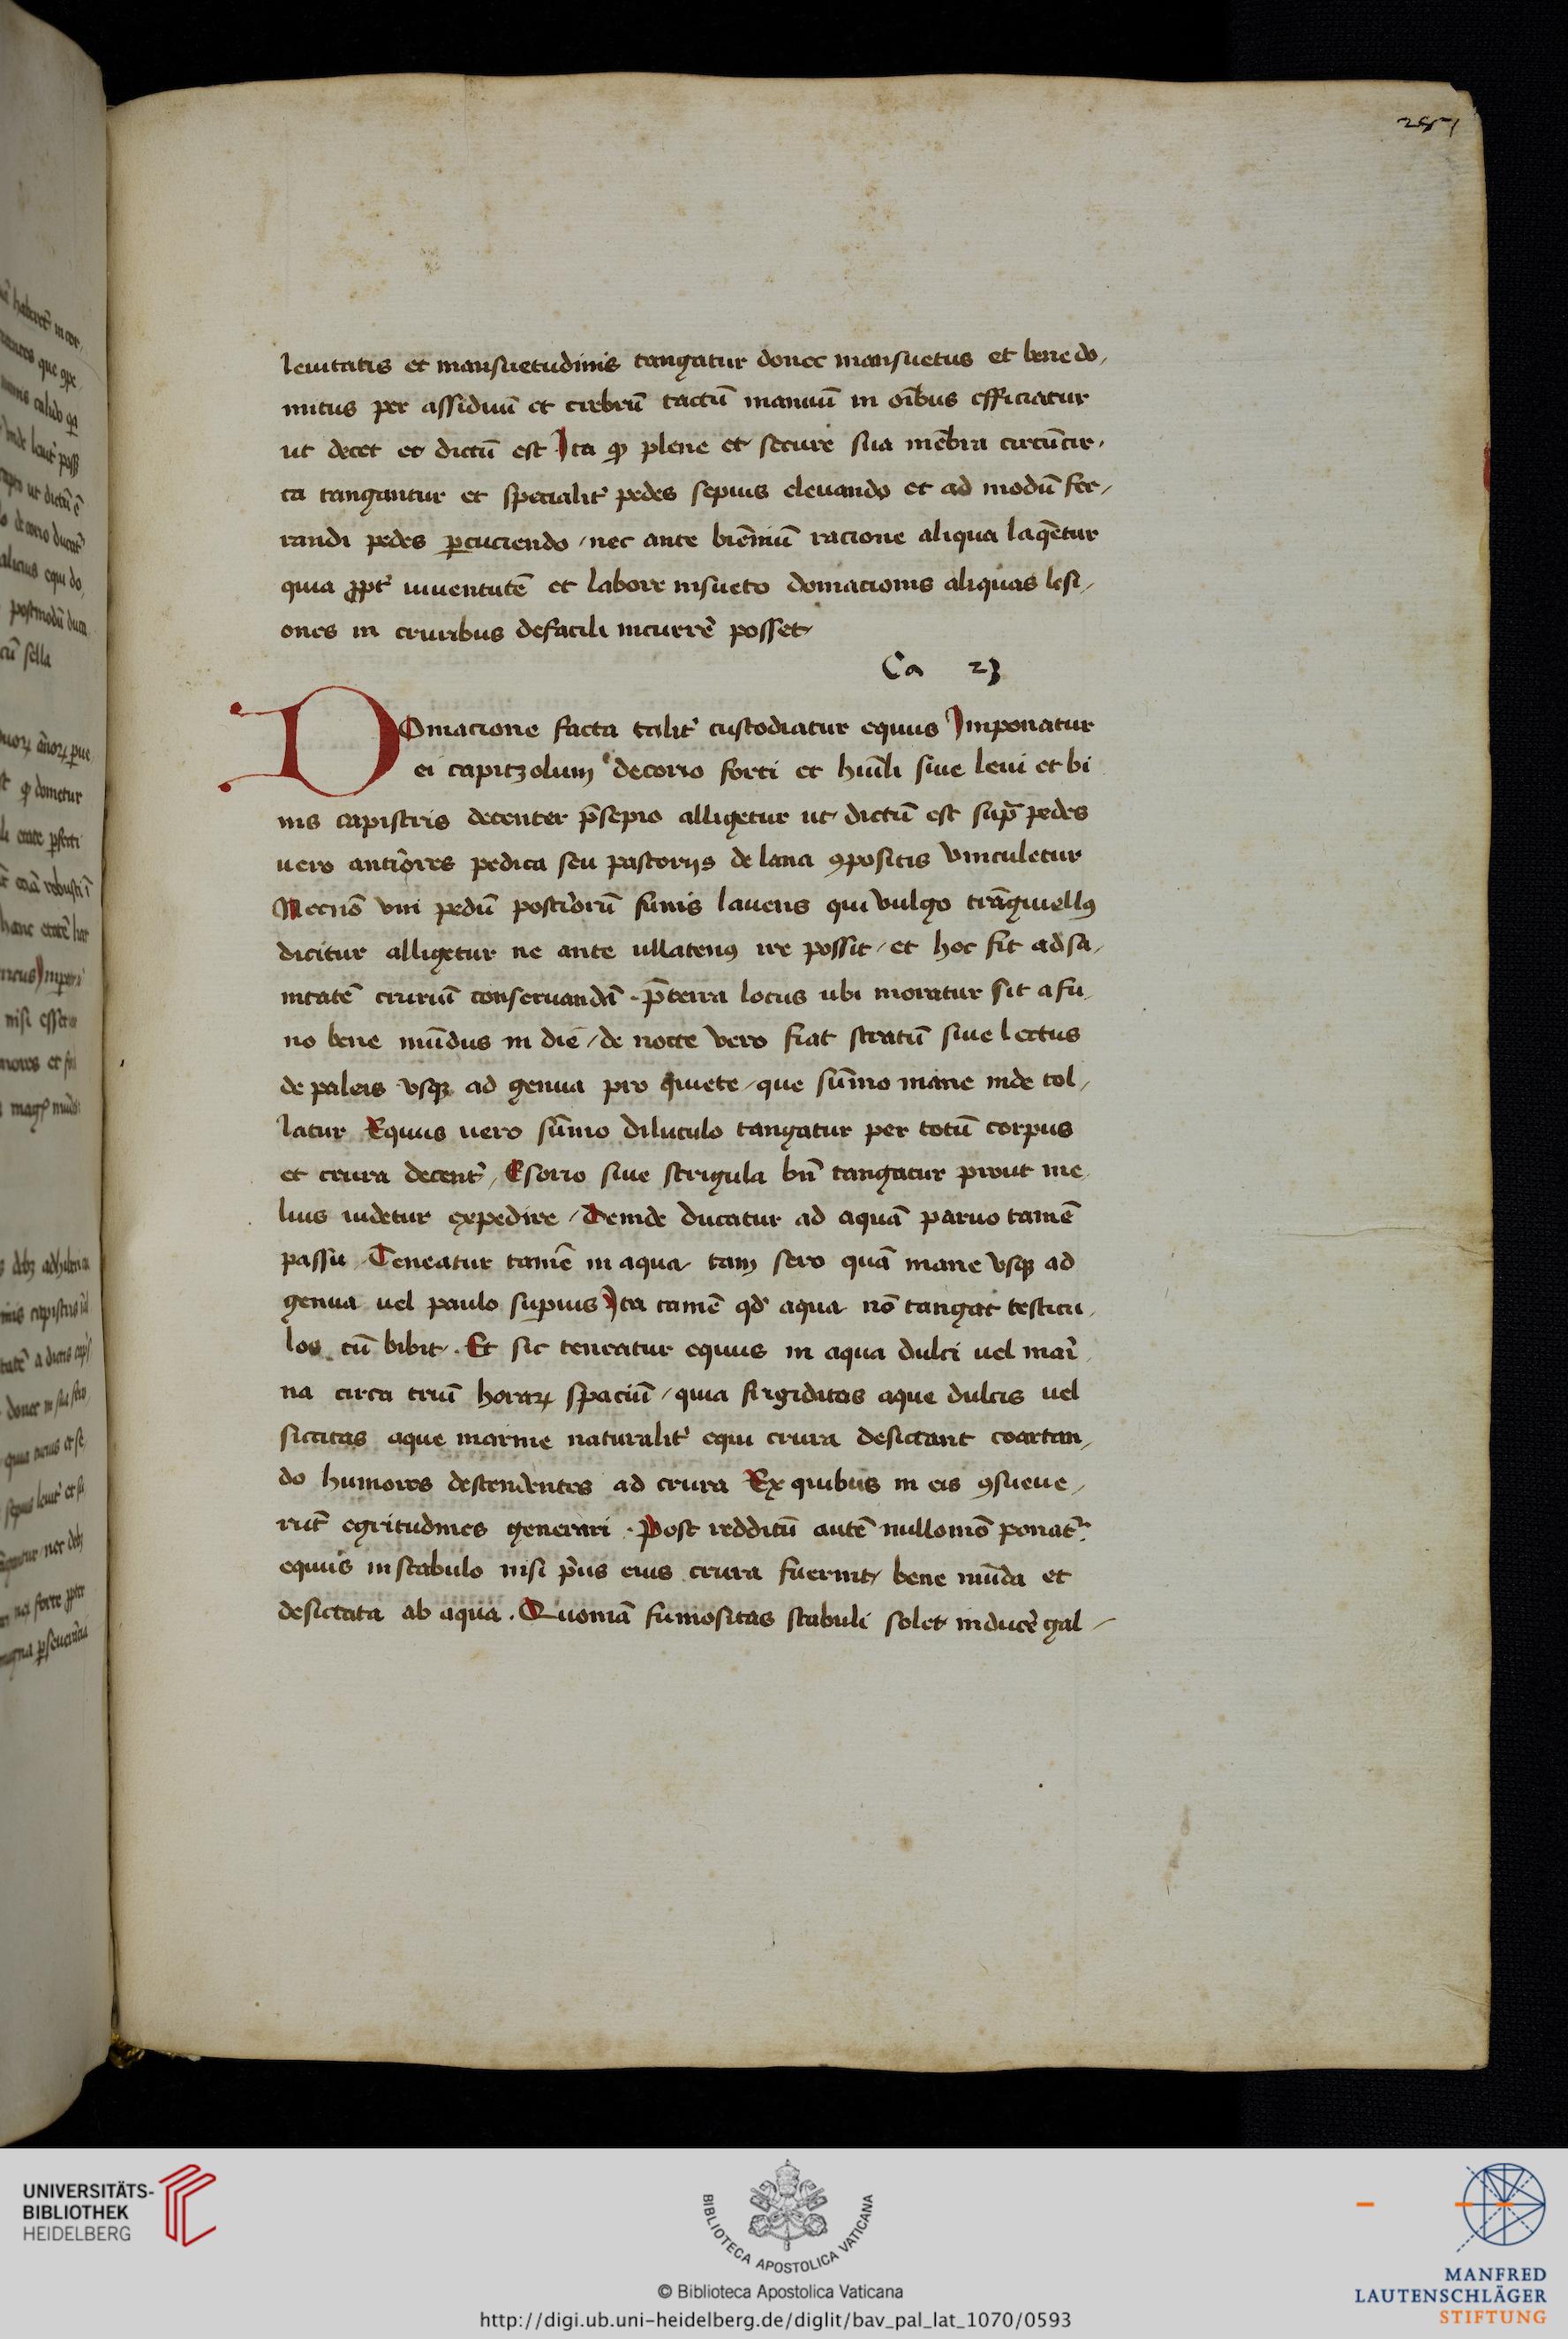 leuitatis et mansuetudinis tangatur donec mansuetus et bene do,
mitus per assiduũ et crebrũ tactũ manuũ in oĩbus efficiatur
ut decet et dictũ est Ita ꝙ plene et secure sua mẽbra circũcir,
ca tangantur et specialit̾ pedes sepius eleuando et ad modũ fer,
randi pedes ꝑcuciendo / nec ante biẽniũ racione aliqua laq̃etur
quia ꝓpt̾ iuuentutẽ et labore insueto domacionis aliquas lesi,
ones in cruribus defacili incurrẽ posset
Ca 23
DOmacione facta talit̾ custodiatur equus Imponatur
ei capitzolum decorio forti et hũili siue leui et bi
nis capistris decenter p̃sepio alligetur ut dictũ est sup̃ pedes
uero anti̾ores pedica seu pastorijs de lana ꝯpositis vinculetur
Necnõ vni pedũ posti̾orũ funis lauens qui vulgo trãgiuellꝰ
dicitur alligetur ne ante ullatenꝰ ire possit / et hoc fit ad sa,
nitatẽ cruriũ conseruandã . p̃terea locus ubi moratur sit a fu,
no bene mũdus in die / de nocte vero fiat stratũ siue lectus
de paleis vsqꝫ ad genua pro quiete / que sũmo mane inde tol,
latur Equus uero sũmo diluculo tangatur per totũ corpus
et crura decent̾, Esorio siue strigula bñ tangatur prout me,
lius uidetur expedire / Deinde ducatur ad aquã paruo tamẽ
passu, Teneatur tamẽ in aqua tam sero quã mane vsqꝫ ad
genua uel paulo suꝑius Ita tamẽ qd̾ aqua nõ tangat testicu,
los cũ bibit . Et sic teneatur equus in aqua dulci uel mari,
na circa triũ horaꝝ spaciũ / quia frigiditas aque dulcis uel
siccitas aque marine naturalit̾ equi crura desiccant coartan,
do humores descendentes ad crura Ex quibus in eis ꝯsueue,
rũt egritudines generari . Post redditũ autẽ nullomõ ponat̾
equus in stabulo nisi p̾us eius crura fuerint bene mũda et
desiccata ab aqua . Quoniã fumositas stabuli solet inducẽ gal,
UNIVERSITÄTS-
BIBLIOTHEK
HEIDELBERG
BIBLIOTECA APOSTOLICA VATICANA
© Biblioteca Apostolica Vaticana
http://digi.ub.uni-heidelberg.de/diglit/bav_pal_lat_1070/0593
MANFRED
LAUTENSCHLÄGER
STIFTUNG